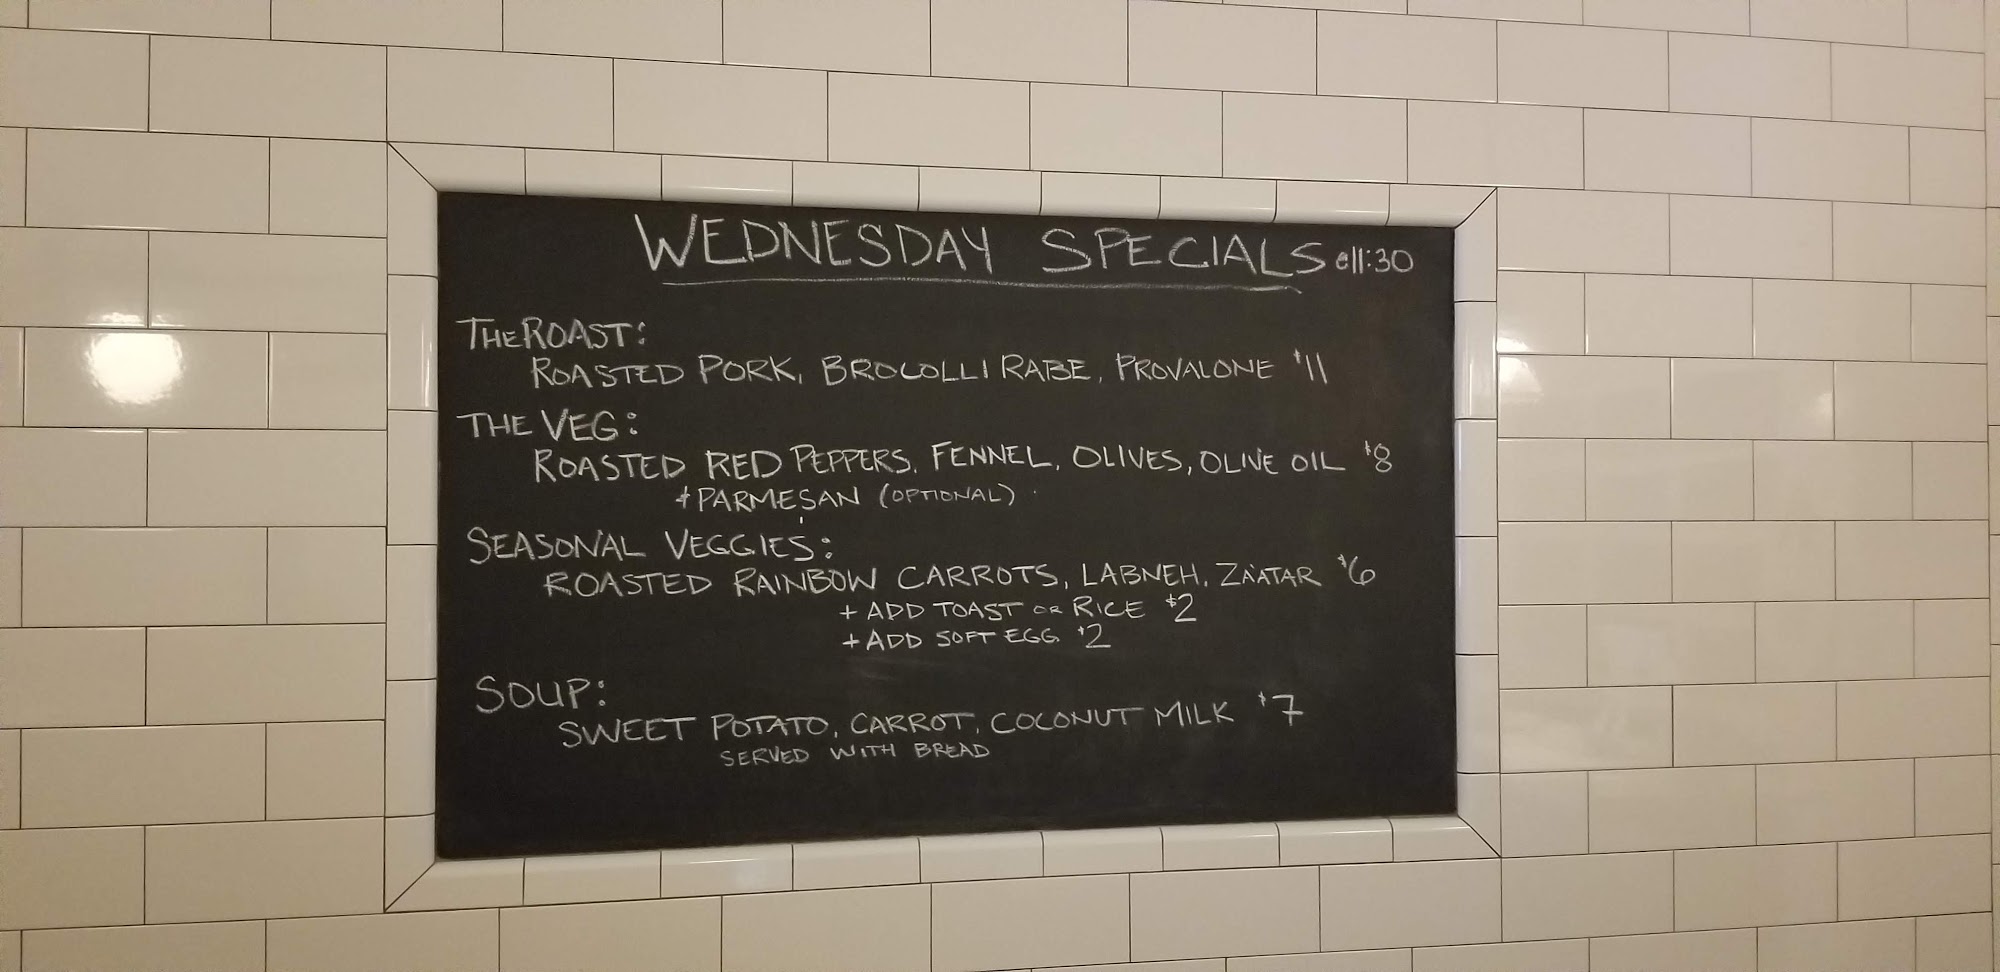 WEDNESDAY SPECIALS @11:30
THE ROAST:
ROASTED PORK, BROCOLLI RABE, PROVALONE $11
THE VEG:
ROASTED RED PEPPERS, FENNEL, OLIVES, OLIVE OIL $8
+ PARMESAN (OPTIONAL)
SEASONAL VEGGIES:
ROASTED RAINBOW CARROTS, LABNEH, ZA'ATAR $6
+ ADD TOAST OR RICE $2
+ ADD SOFT EGG $2
SOUP:
SWEET POTATO, CARROT, COCONUT MILK $7
SERVED WITH BREAD